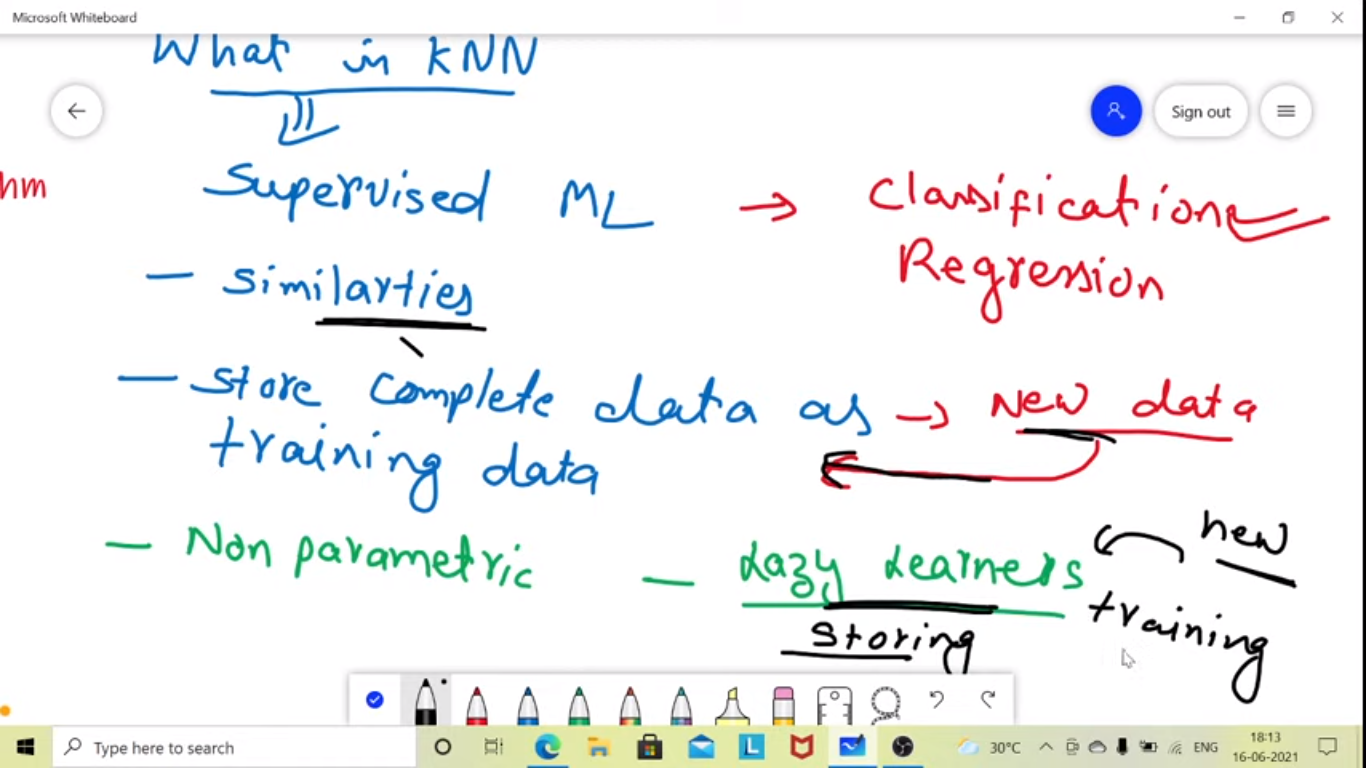 Microsoft Whiteboard
What in KNN
Sign out
hm
Supervised ML → Classification
Regression
— Similarties
— Store complete data as → New data
training data
— Non parametric — Lazy Learners
new
training
Storing
Type here to search
30°C
ENG
18:13
16-06-2021